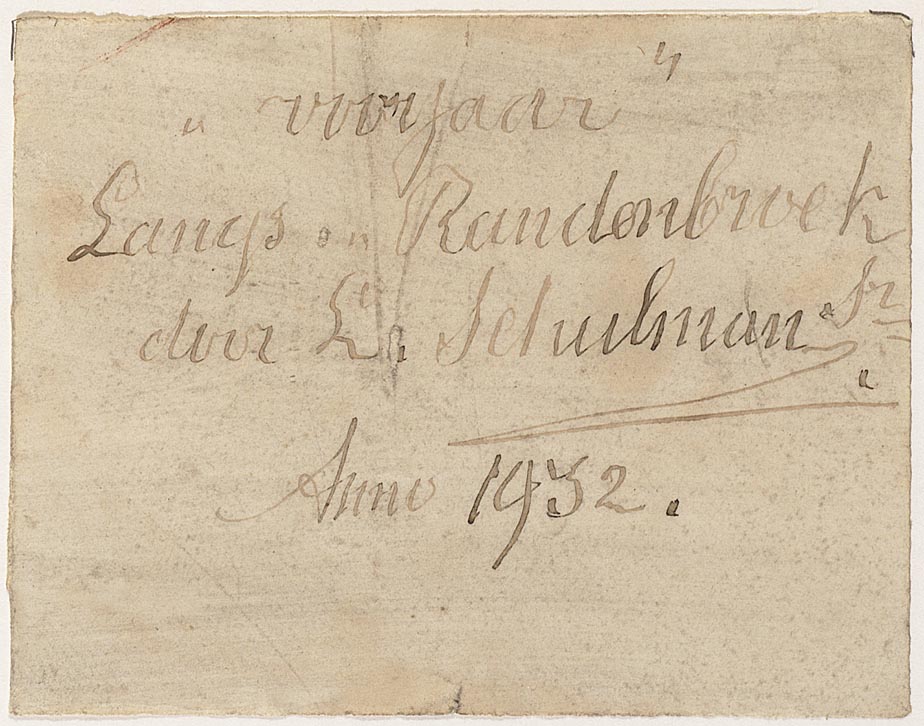 „ voorjaar "
Langs „ Randenbroek
door L. Schulman. Sr.
Anno 1932.